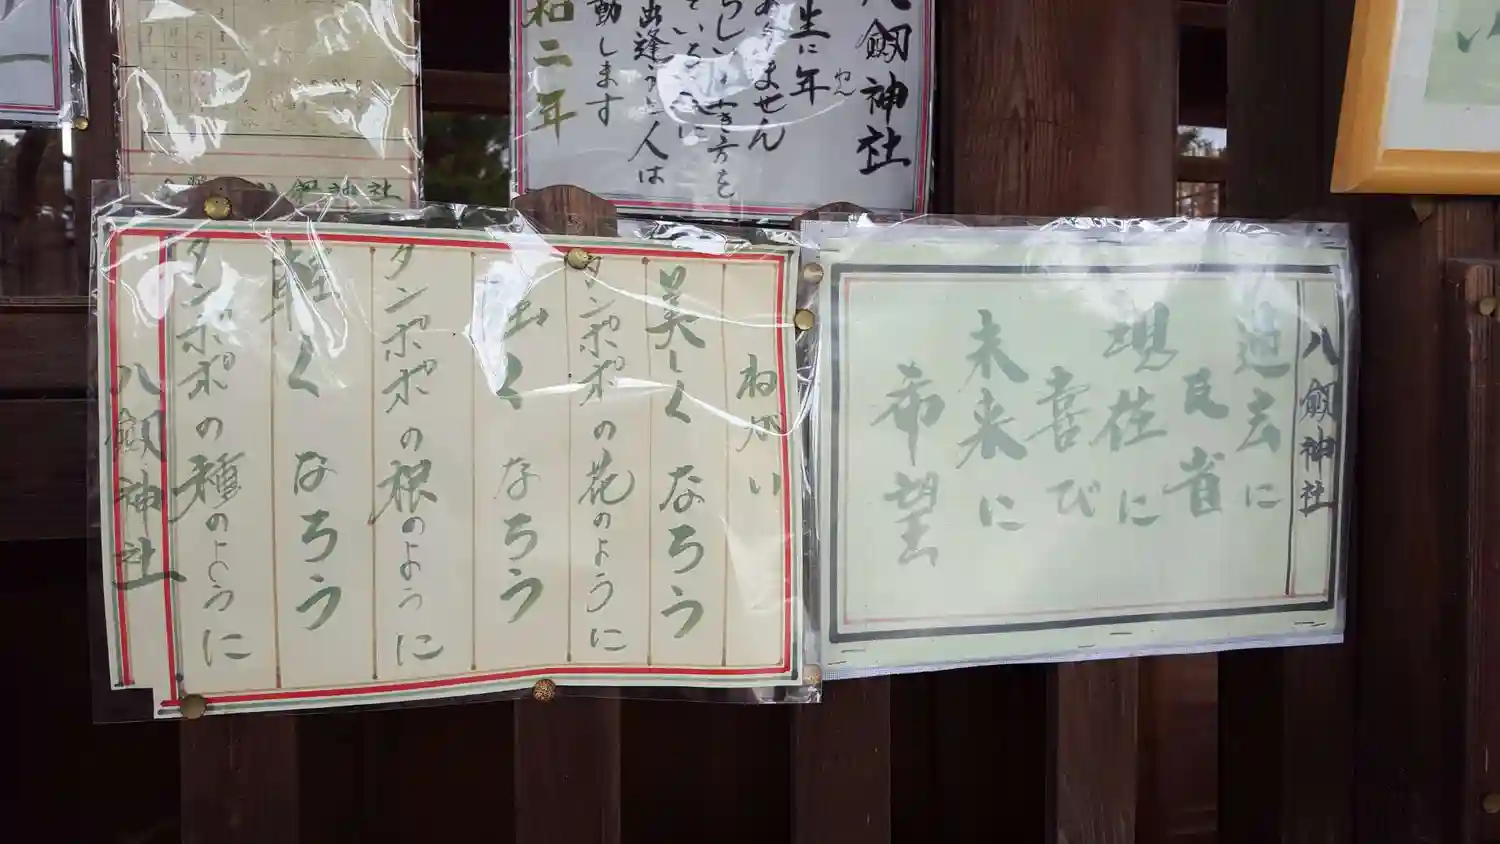 八劔神社
生に年
ねん
ありません
出逢う人は
動します
和二年
八劔神社
過去に
反省
現在に
喜び
未来に
希望
ねがい
美しくなろう
タンポポの花のように
強くなろう
タンポポの根のように
軽くなろう
タンポポの種のように
八劔神社
劔神社